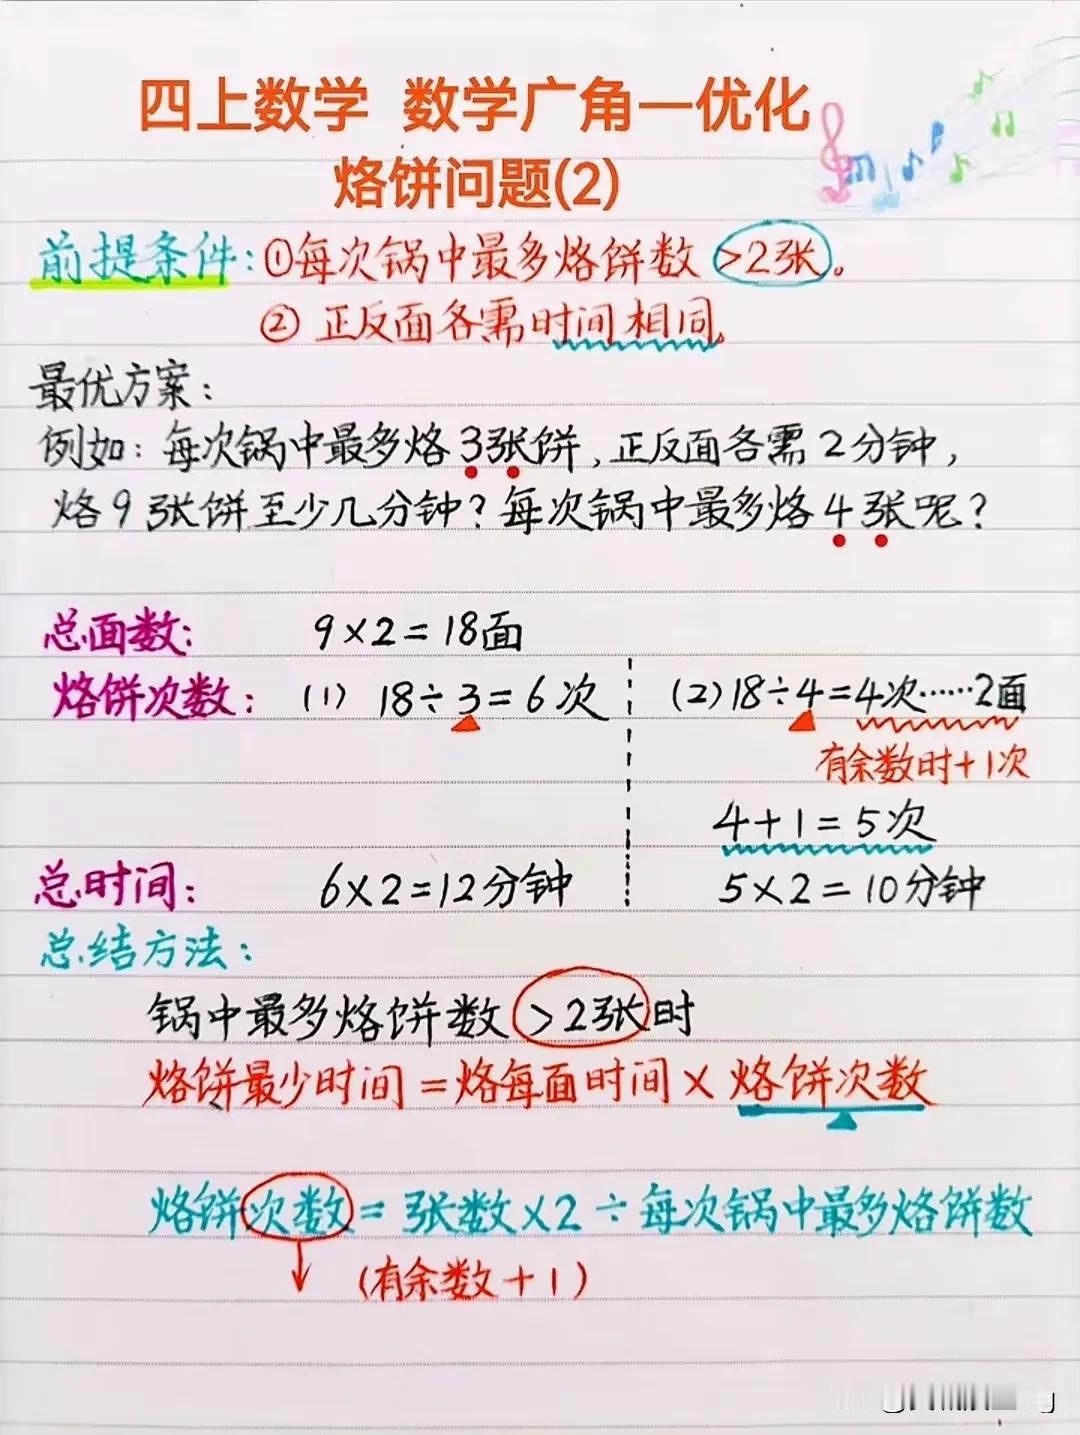 四上数学 数学广角—优化
烙饼问题(2)
前提条件:①每次锅中最多烙饼数>2张。
②正反面各需时间相同。
最优方案:
例如:每次锅中最多烙3张饼,正反面各需2分钟,
烙9张饼至少几分钟?每次锅中最多烙4张呢?
总面数: 9×2=18面
烙饼次数: (1) 18÷3=6次 (2)18÷4=4次……2面
有余数时+1次
4+1=5次
总时间: 6×2=12分钟 5×2=10分钟
总结方法:
锅中最多烙饼数>2张时
烙饼最少时间=烙每面时间×烙饼次数
烙饼次数=张数×2÷每次锅中最多烙饼数
(有余数+1)